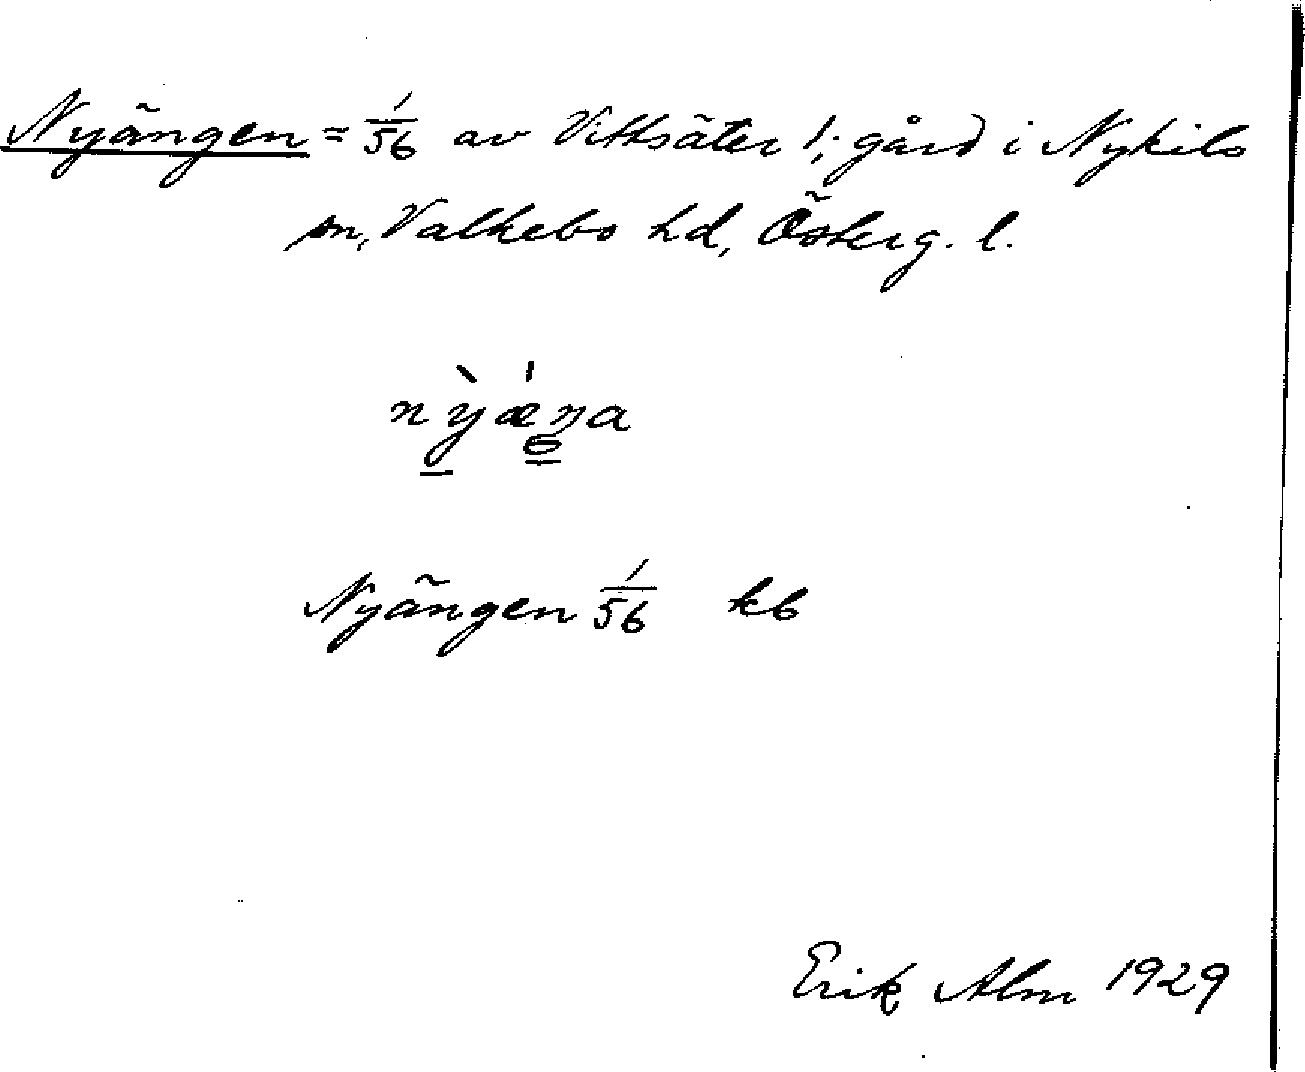 Nyängen = 1/56 av Vittsäter !; gård i Nykils
sn, Valkebo hd, Österg. l.
nỳæ̍ŋa
Nyängen 1/56 kb
Erik Alm 1929